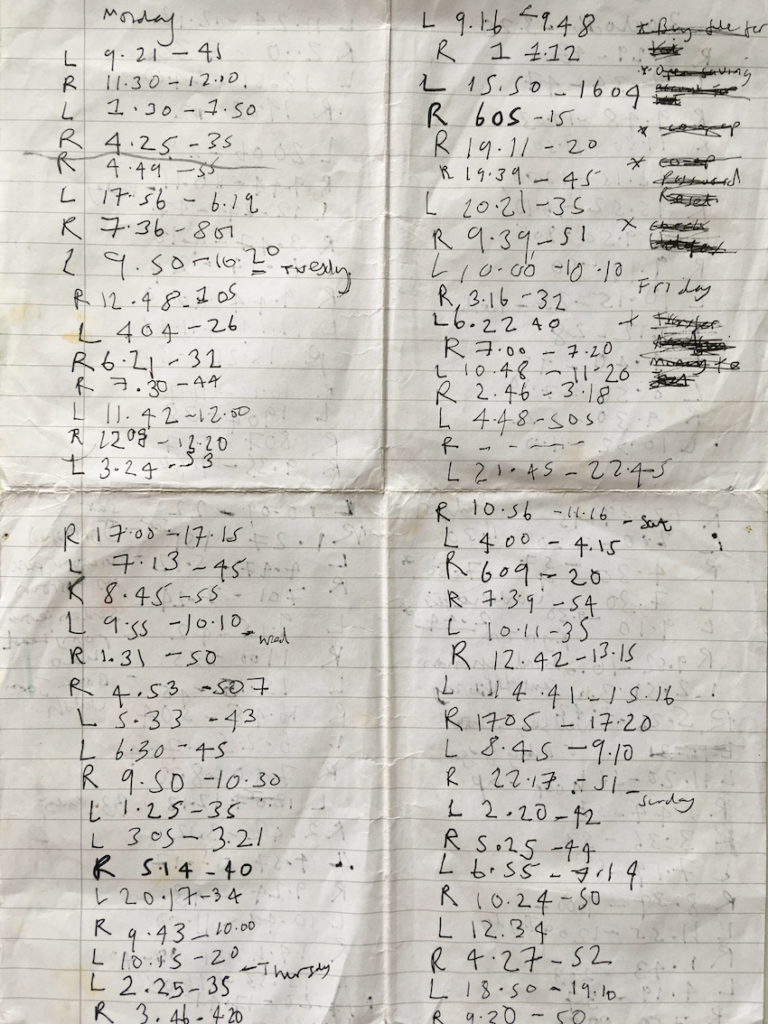 Monday
L 9.21 - 45
R 11.30 - 12.10.
L 1.30 - 1.50
R 4.25 - 35
R 4.49 - 55
L 17.56 - 6.19
R 7.36 - 801
L 9.50 - 10.20
Tuesday
R 12.48 - 105
L 404 - 26
R 6.21 - 32
R 7.30 - 44
L 11.42 - 12.00
R 1209 - 12.20
L 3.24 - 33
R 17.00 - 17.15
L 7.13 - 45
R 8.45 - 55
L 9.55 - 10.10
- wed
R 1.31 - 50
R 4.53 - 507
L 5.33 - 43
L 6.30 - 45
R 9.50 - 10.30
L 1.25 - 35
L 305 - 3.21
R 514 - 40
L 20.17 - 34
R 9.43 - 10.00
L 10.15 - 20
- Thursday
L 2.25 - 35
R 3.46 - 420
L 9.16 - 9.48
R 1 1.12
L 15.50 - 1604
R 605 - 15
R 19.11 - 20
R 19.39 - 45
L 20.21 - 35
R 9.39 - 51
L 10.00 - 10.10
Friday
R 3.16 - 32
L 6.22 40
R 7.00 - 7.20
L 10.48 - 11.20
R 2.46 - 3.18
L 4.48 - 505
R - - - -
L 21.45 - 22.45
R 10.56 - 11.16
- Sat
L 4.00 - 4.15
R 609 - 20
R 7.39 - 54
L 10.11 - 35
R 12.42 - 13.15
L 14.41 - 15.16
R 1705 - 17.20
L 8.45 - 9.10
R 22.17 - 51
- Sunday
L 2.20 - 42
R 5.25 - 44
L 6.55 - 7.14
R 10.24 - 50
L 12.34
R 4.27 - 52
L 18.50 - 19.10
R 9.20 - 50
* Buy
* open saving
account for
* co-op
* co-op
Password
Reset
* check
* Transfer
money to